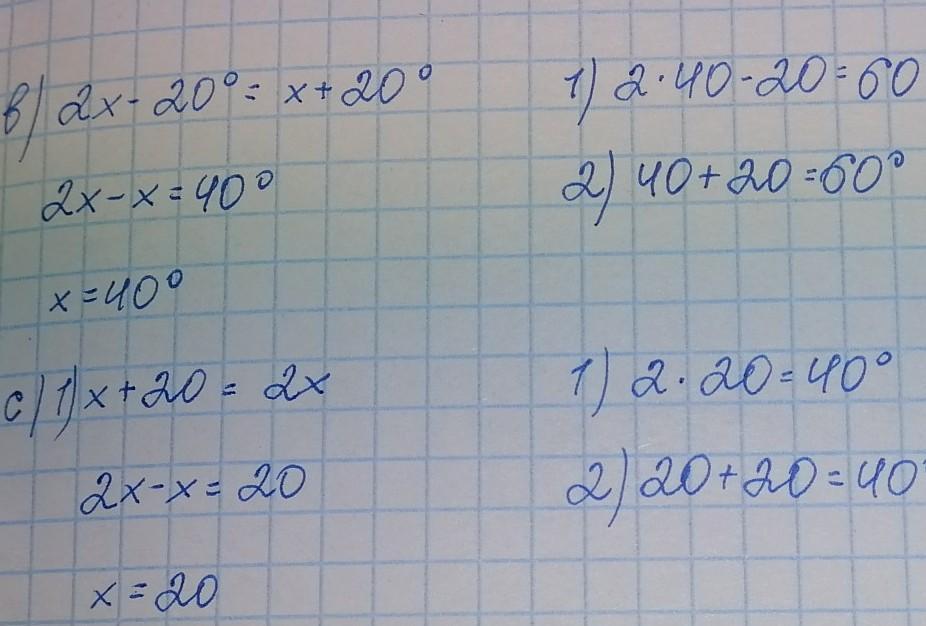 в) 2x - 20° = x + 20°
1) 2·40 - 20 = 60
2x - x = 40°
2) 40 + 20 = 60°
x = 40°
c) 1) x + 20 = 2x
1) 2·20 = 40°
2x - x = 20
2) 20 + 20 = 40°
x = 20